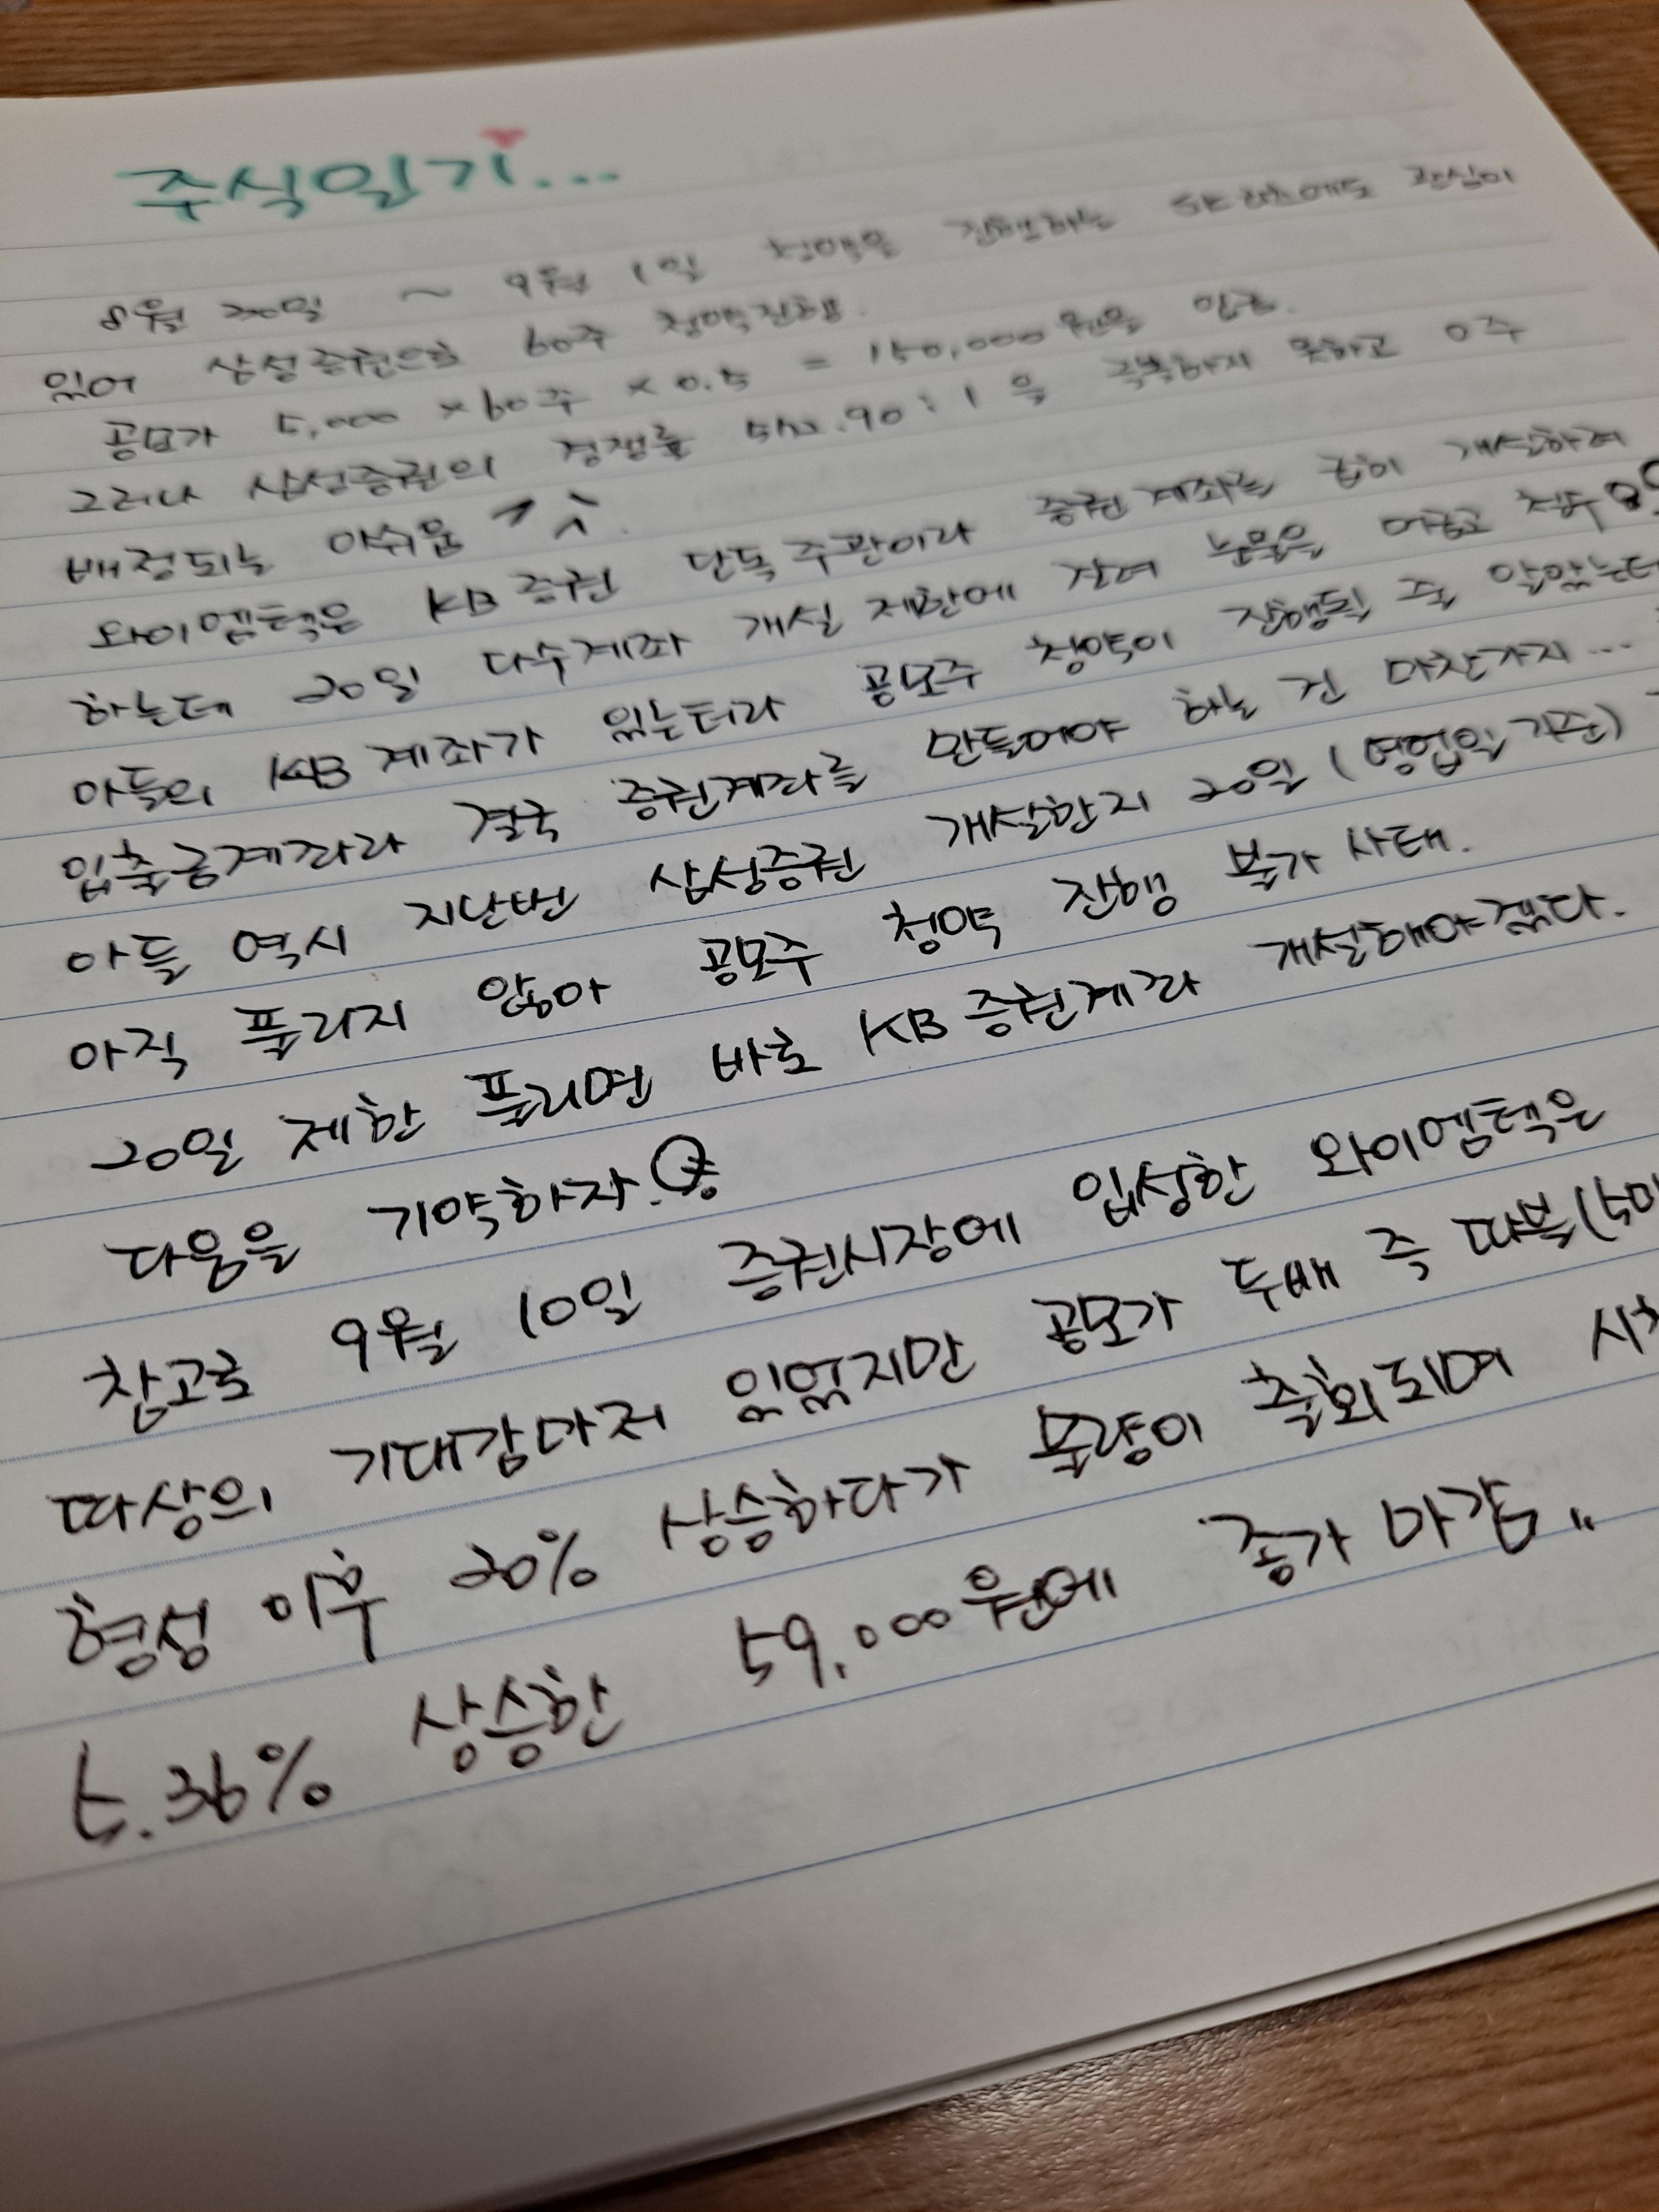 주식일기...
8월 30일 ~ 9월 1일 청약을 진행하는 SK리츠에도 관심이
있어 삼성증권으로 60주 청약진행.
공모가 5,000 × 60주 × 0.5 = 150,000원을 입금.
그러나 삼성증권의 경쟁률 .90 : 1 을 극복하지 못하고 0주
배정되는 아쉬움
와이엠텍은 KB증권 단독주관이라 증권계좌를 급히 개설하려
하는데 20일 다수계좌 개설 제한에 걸려 눈물을 머금고
아들의 KB계좌가 있는터라 공모주 청약이 진행될 줄 알았는데
입출금계좌라 결국 증권계좌를 만들어야 하는 건 마찬가지...
아들 역시 지난번 삼성증권 개설한지 20일 (영업일 기준)
아직 풀리지 않아 공모주 청약 진행 불가 사태.
20일 제한 풀리면 바로 KB증권계좌 개설해야겠다.
다음을 기약하자.
참고로 9월 10일 증권시장에 입성한 와이엠텍은
따상의 기대감마저 있었지만 공모가 두배 즉 따블(
형성 이후 20% 상승하다가 물량이 출회되며
5.36% 상승한 59,000원에 종가 마감..